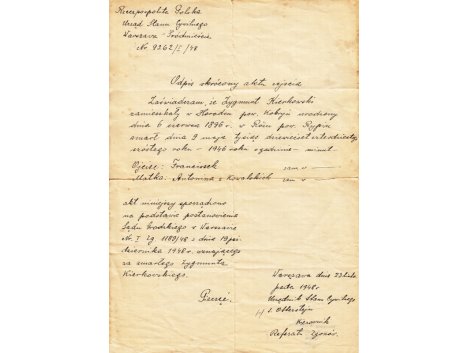 Rzeczpospolita Polska
Urząd Stanu Cywilnego
Warszawa - Śródmieście
Nr 9262/I/48
Odpis skrócony aktu zejścia
Zaświadczam, że Zygmunt Kierkowski
zamieszkały w Horodcu pow. Kobryń urodzony
dnia 6 czerwca 1896 r. w Rżu pow. Rypin
zmarł dnia 9 maja tysiąc dziewięćset czterdziestego
szóstego roku - 1946 roku o godzinie - minut
Ojciec: Franciszek zam. w
Matka: Antonina z Kowalskich zam. w
Akt niniejszy sporządzono
na podstawie postanowienia
Sądu Grodzkiego w Warszawie
Nr. I Zg. 1189/48 z dnia 19 paź
dziernika 1948 r. uznającego
za zmarłego Zygmunta
Kierkowskiego.
Pieczęć.
Warszawa dnia 23 listo
pada 1948 r
Urzędnik Stanu Cywilnego
Kierownik
Referatu Zgonów.